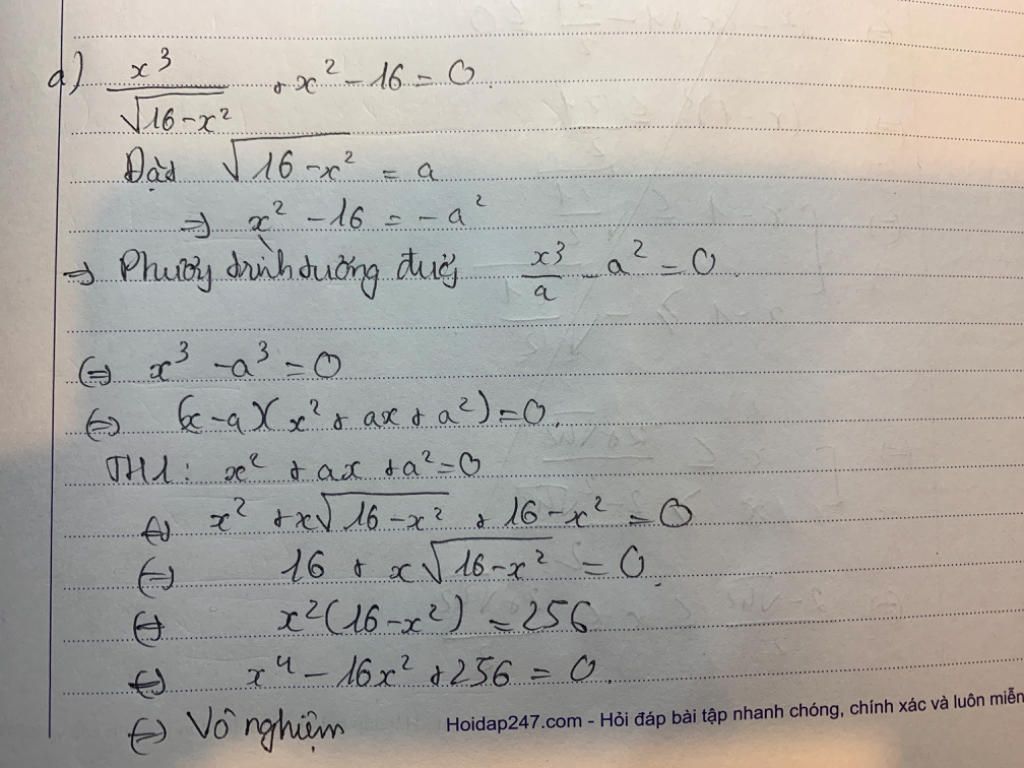 a) x³/√(16-x²) + x² - 16 = 0.
Đặt √(16-x²) = a
⇒ x² - 16 = -a²
⇒ Phương trình tương đương x³/a - a² = 0.
⇔ x³ - a³ = 0
⇔ (x-a)(x² + ax + a²) = 0.
TH1: x² + ax + a² = 0
⇔ x² + x√(16-x²) + 16 - x² = 0
⇔ 16 + x√(16-x²) = 0.
⇔ x²(16-x²) = 256
⇔ x⁴ - 16x² + 256 = 0.
⇔ Vô nghiệm
Hoidap247.com - Hỏi đáp bài tập nhanh chóng, chính xác và luôn miễn